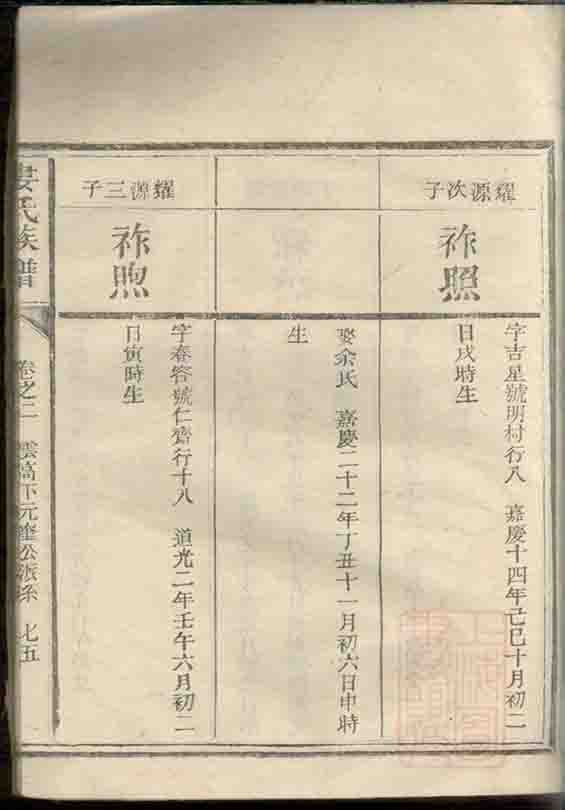 耀源次子
祚照
字吉星號明村行八 嘉慶十四年己巳十月初二
日戌時生
娶余氏 嘉慶二十二年丁丑十一月初六日申時
生
耀源三子
祚煦
字春容號仁齋行十八 道光二年壬午六月初二
日寅時生
氏族譜
卷之二 雲高下元奎公派系 七五